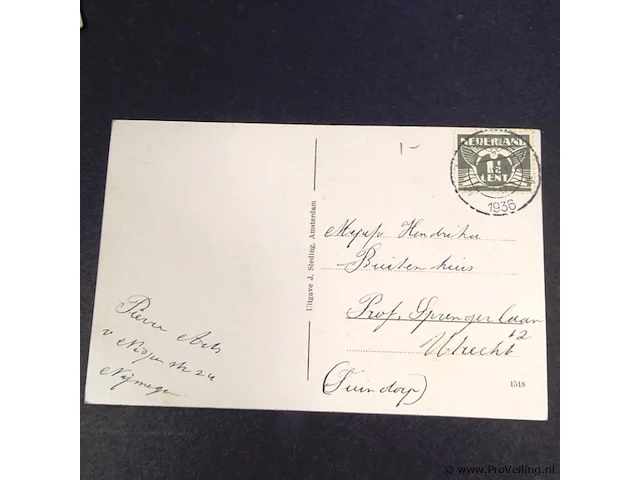 1-
NEDERLAND
1½
CENT
1936
Mejufr. Hendrika
Buitenhuis
Prof. Sprengerlaan
12
Utrecht
(Tuindorp)
Pierre Arts
Nijmegen
Uitgave J. Sleding, Amsterdam
1518
© www.ProVeiling.nl